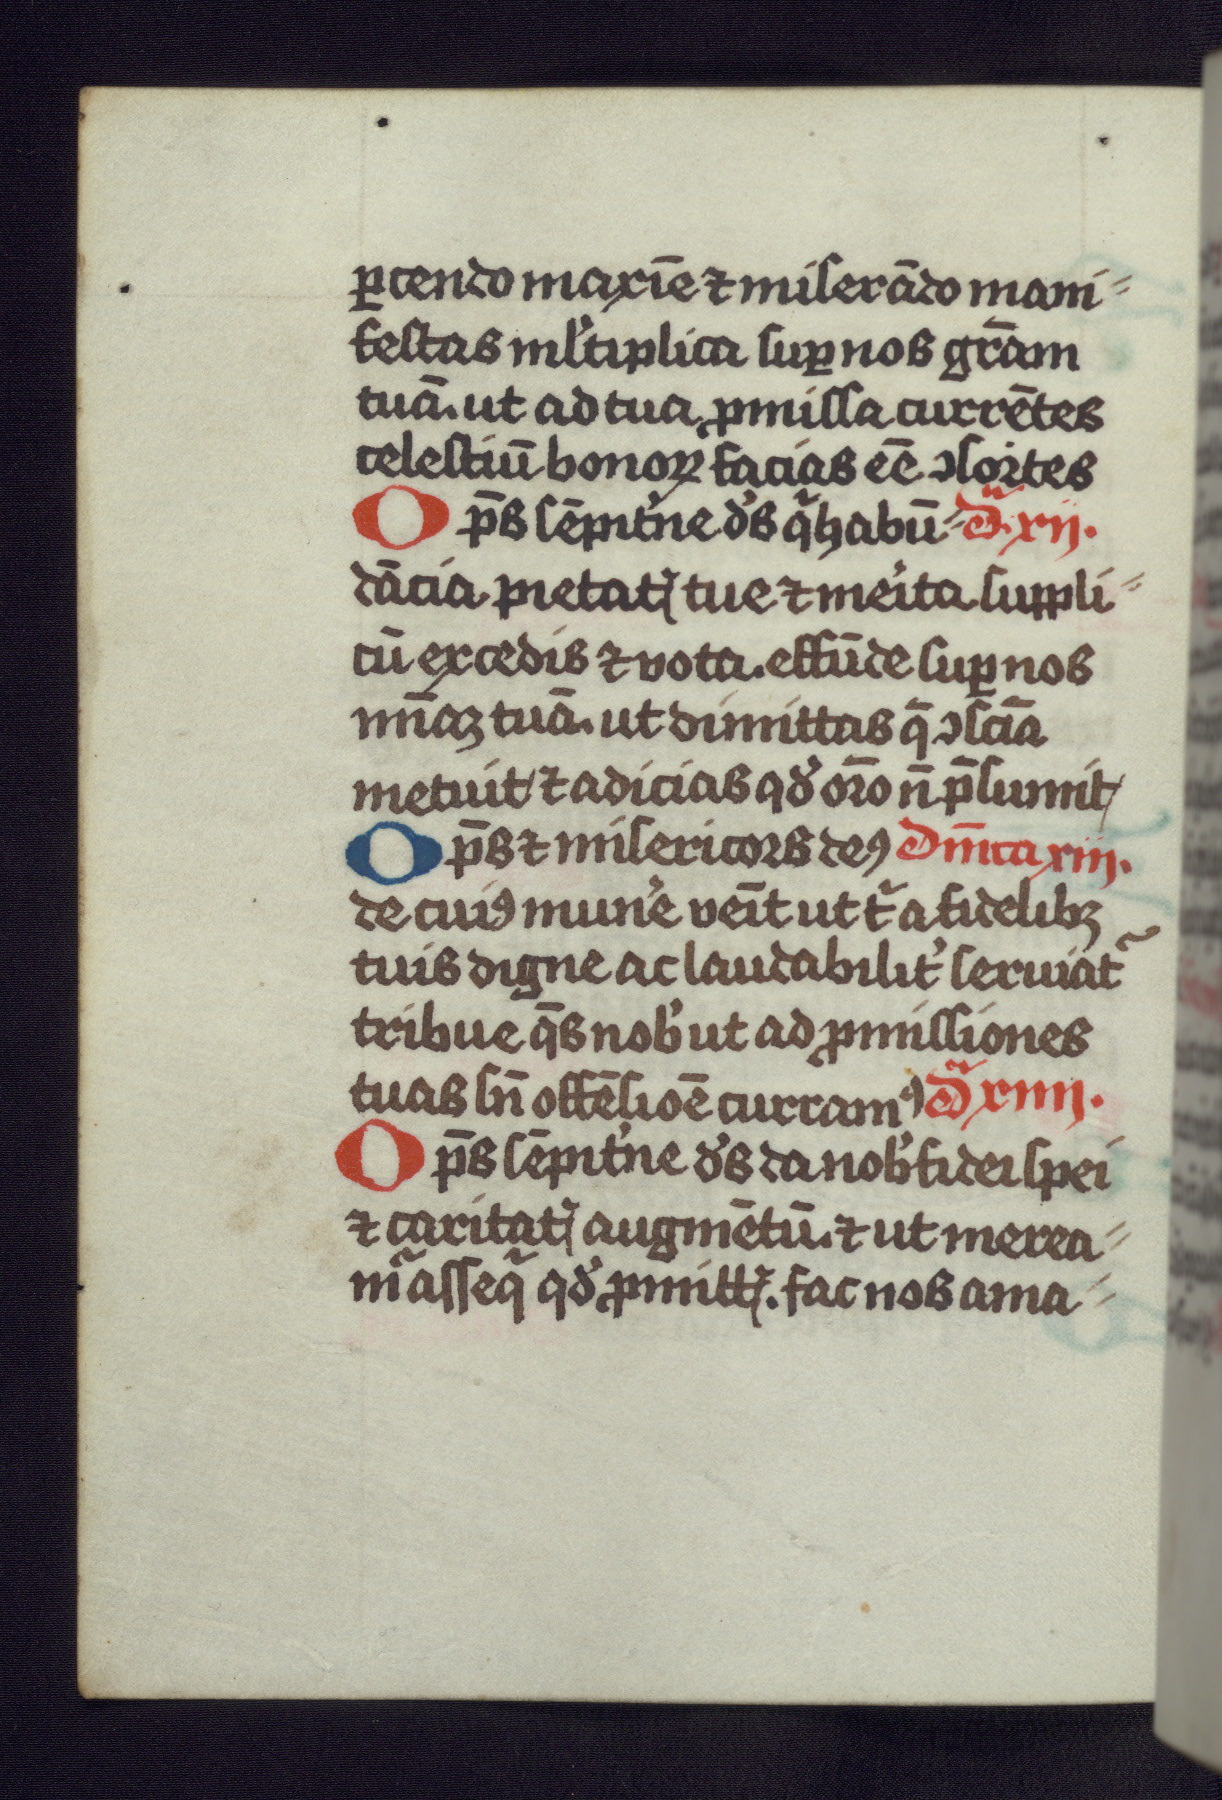 ꝑcendo maxīe ⁊ miserādo mani⸗
festas ml̓tiplica suꝑ nos gr̄am
tuā. ut ad tua ꝓmissa currētes
celestiū bonoꝝ facias eē ↄsortes
Op̄s sēpit̓ne ds̓ q̓ habū⸗ D̄. xij.
dācia pietatꝭ tue ⁊ me̓ita suppli⸗
cū excedis ⁊ vota. effūde suꝑ nos
mīaꝫ tuā. ut dimittas q̄ ↄscīa
metuit ⁊ adicias qd̓ or̄o n̄ p̄sumit
Op̄s ⁊ misericors deꝰ Dm̄ica xiij.
de cuiꝰ mune̓ veīt ut t̓ a fidelibꝫ
tuis digne ac laudabilit̓ seruiat̓
tribue qs̄ nob̓ ut ad ꝓmissiones
tuas sn̄ offēsioē curramꝰ D̄ xiiij.
Op̄s sēpit̓ne ds̓ da nob̓ fidei spei
⁊ caritatꝭ augmētū. ⁊ ut merea⸗
m̓ asseq̓ qd̓ ꝓmittꝭ. fac nos ama⸗